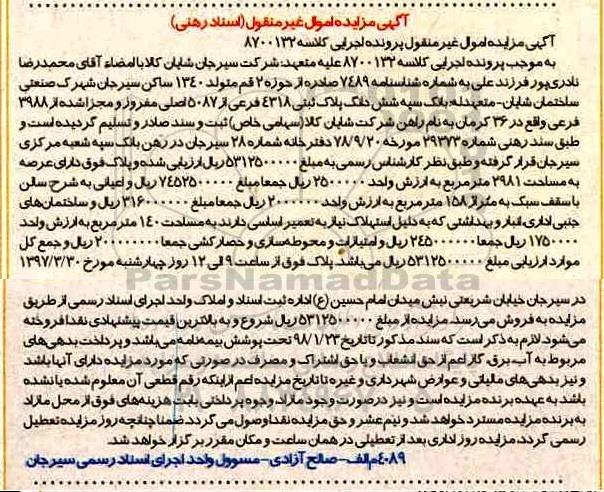 آگهی مزایده اموال غیر منقول (اسناد رهنی)
آگهی مزایده اموال غیر منقول پرونده اجرایی کلاسه ۸۷۰۰۱۳۲
به موجب پرونده اجرایی کلاسه ۸۷۰۰۱۳۲ علیه متعهد: شرکت سیرجان شایان کالا با امضاء آقای محمدرضا
نادری‌پور فرزند علی به شماره شناسنامه ۷۴۸۹ صادره از حوزه ۲ قم متولد ۱۳۴۰ ساکن سیرجان شهرک صنعتی
ساختمان شایان- متعهدله: بانک سپه شش دانگ پلاک ثبتی ۴۳۱۸ فرعی از ۵۰۸۷ اصلی مفروز و مجزا شده از ۳۹۸۸
فرعی واقع در ۳۶ کرمان به نام راهن شرکت شایان کالا (سهامی خاص) ثبت و سند صادر و تسلیم گردیده است و
طبق سند رهنی شماره ۲۹۳۷۳ مورخه ۷۸/۹/۲۰ دفترخانه شماره ۲۸ سیرجان در رهن بانک سپه شعبه مرکزی
سیرجان قرار گرفته و طبق نظر کارشناس رسمی به مبلغ ۵۳۱۲۵۰۰۰۰۰ ریال ارزیابی شده و پلاک فوق دارای عرصه
به مساحت ۲۹۸۱ متر مربع به ارزش واحد ۲۵۰۰۰۰ ریال جمعا مبلغ ۷۴۵۲۵۰۰۰۰ ریال و اعیانی به شرح سالن
با سقف سبک به متراژ ۱۵۸ متر مربع به ارزش واحد ۲۰۰۰۰۰۰ ریال جمعا مبلغ ۳۱۶۰۰۰۰۰۰ ریال و ساختمان‌های
جنبی اداری، انبار و بهداشتی که به دلیل استهلاک نیاز به تعمیر اساسی دارند به مساحت ۱۴۰ متر مربع به ارزش واحد
۱۷۵۰۰۰۰ ریال جمعا ۲۴۵۰۰۰۰۰۰ ریال و امتیازات و محوطه‌سازی و حصارکشی جمعا ۲۰۰۰۰۰۰۰۰ ریال و جمع کل
موارد ارزیابی مبلغ ۵۳۱۲۵۰۰۰۰۰ ریال می‌باشد. پلاک فوق از ساعت ۹ الی ۱۲ روز چهارشنبه مورخ ۱۳۹۷/۳/۳۰
ParsNamadData
در سیرجان خیابان شریعتی نبش میدان امام حسین (ع) اداره ثبت اسناد و املاک واحد اجرای اسناد رسمی از طریق
مزایده به فروش می‌رسد. مزایده از مبلغ ۵۳۱۲۵۰۰۰۰۰ ریال شروع و به بالاترین قیمت پیشنهادی نقدا فروخته
می‌شود. لازم به ذکر است که سند مذکور تا تاریخ ۹۸/۱/۲۳ تحت پوشش بیمه‌نامه می‌باشد و پرداخت بدهی‌های
مربوط به آب، برق، گاز اعم از حق انشعاب و یا حق اشتراک و مصرف در صورتی که مورد مزایده دارای آنها باشد
و نیز بدهی‌های مالیاتی و عوارض شهرداری و غیره تا تاریخ مزایده اعم از اینکه رقم قطعی آن معلوم شده یا نشده
باشد به عهده برنده مزایده است و نیز در صورت وجود مازاد، وجوه پرداختی بابت هزینه‌های فوق از محل مازاد
به برنده مزایده مسترد خواهد شد و نیم عشر و حق مزایده نقدا وصول می‌گردد. ضمنا چنانچه روز مزایده تعطیل
رسمی گردد، مزایده روز اداری بعد از تعطیلی در همان ساعت و مکان مقرر برگزار خواهد شد.
۴۰۸۹م‌الف- صالح آزادی- مسوول واحد اجرای اسناد رسمی سیرجان